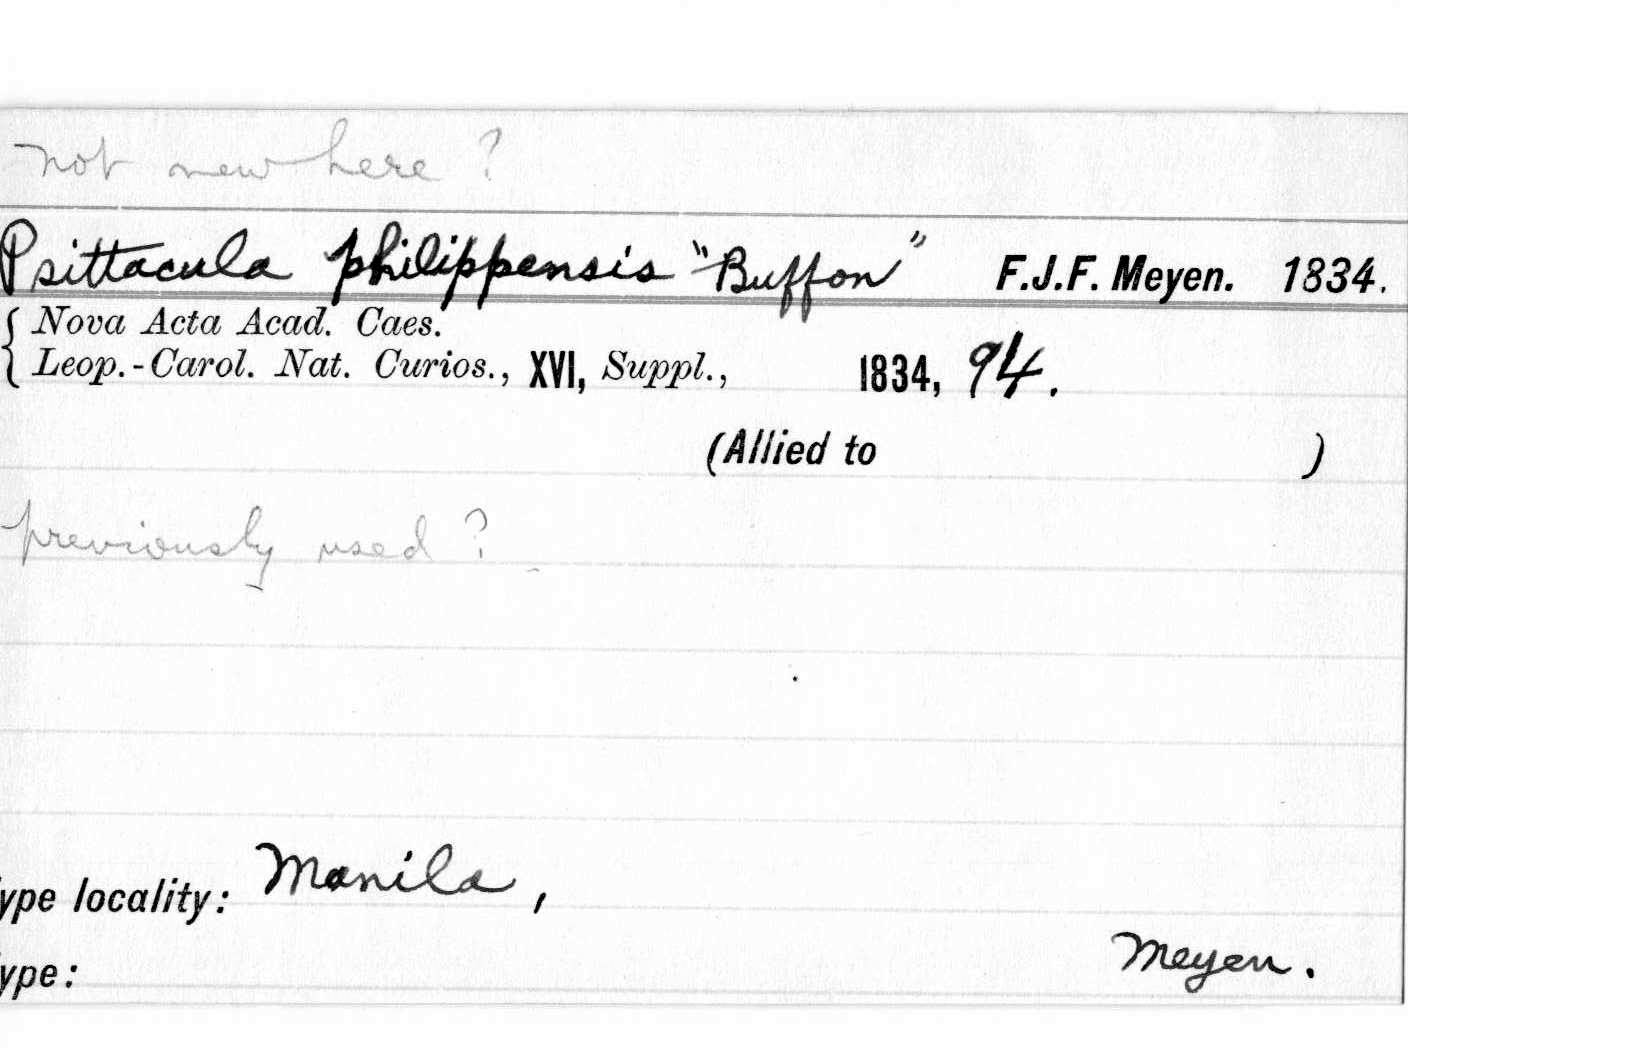 not new here ?
Psittacula philippensis "Buffon" F.J.F. Meyen. 1834.
{ Nova Acta Acad. Caes.
Leop.-Carol. Nat. Curios., XVI, Suppl., 1834, 94.
(Allied to )
previously used ?
ype locality: Manila,
Meyen.
ype: